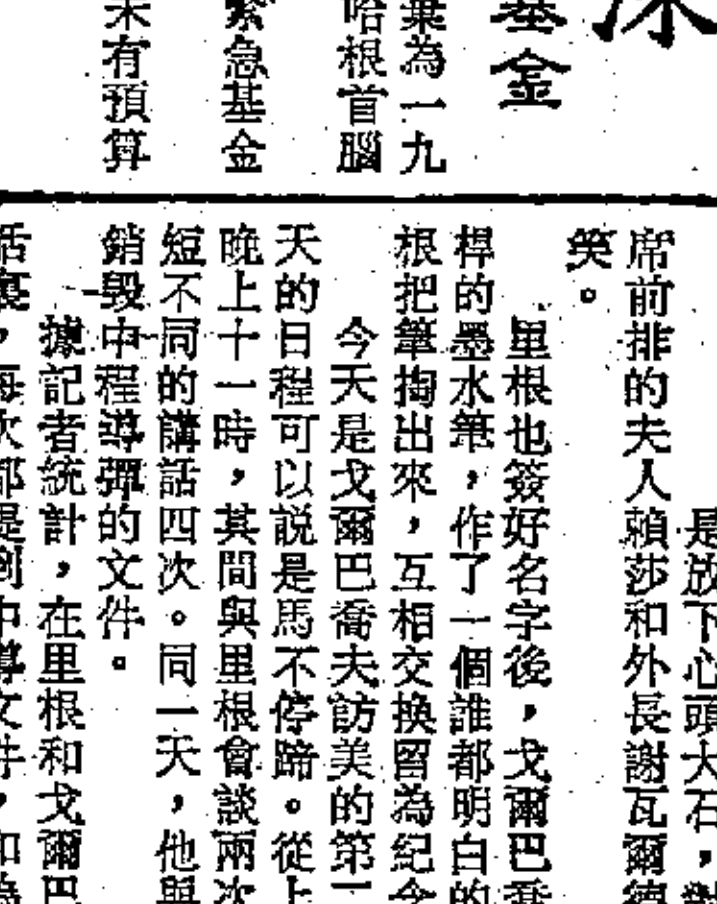 深
基金
棄為一九
哈根首腦
緊急基金
未有預算
是放下心頭大石，對
席前排的夫人賴莎和外長謝瓦爾德
笑。
里根也簽好名字後，戈爾巴喬
桿的墨水筆，作了一個誰都明白的
根把筆掏出來，互相交換留為紀念
今天是戈爾巴喬夫訪美的第一
天的日程可以說是馬不停蹄。從上
晚上十一時，其間與里根會談兩次
短不同的講話四次。同一天，他與
銷毀中程導彈的文件。
據記者統計，在里根和戈爾巴
話裏，每次都是到中導文件，和為